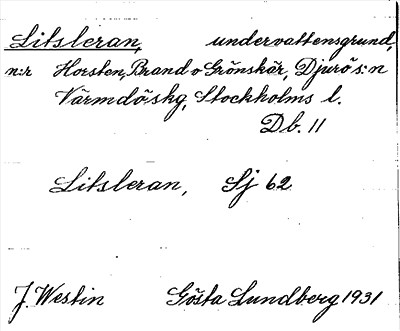 Litsleran, undervattensgrund,
n:r Horsten, Brand o Grönskär, Djurö s:n
Värmdö skg, Stockholms l.
Db. 11
Litsleran, Sj 62
J. Westin Gösta Lundberg 1931